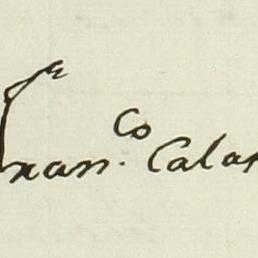 Fran.co Cala